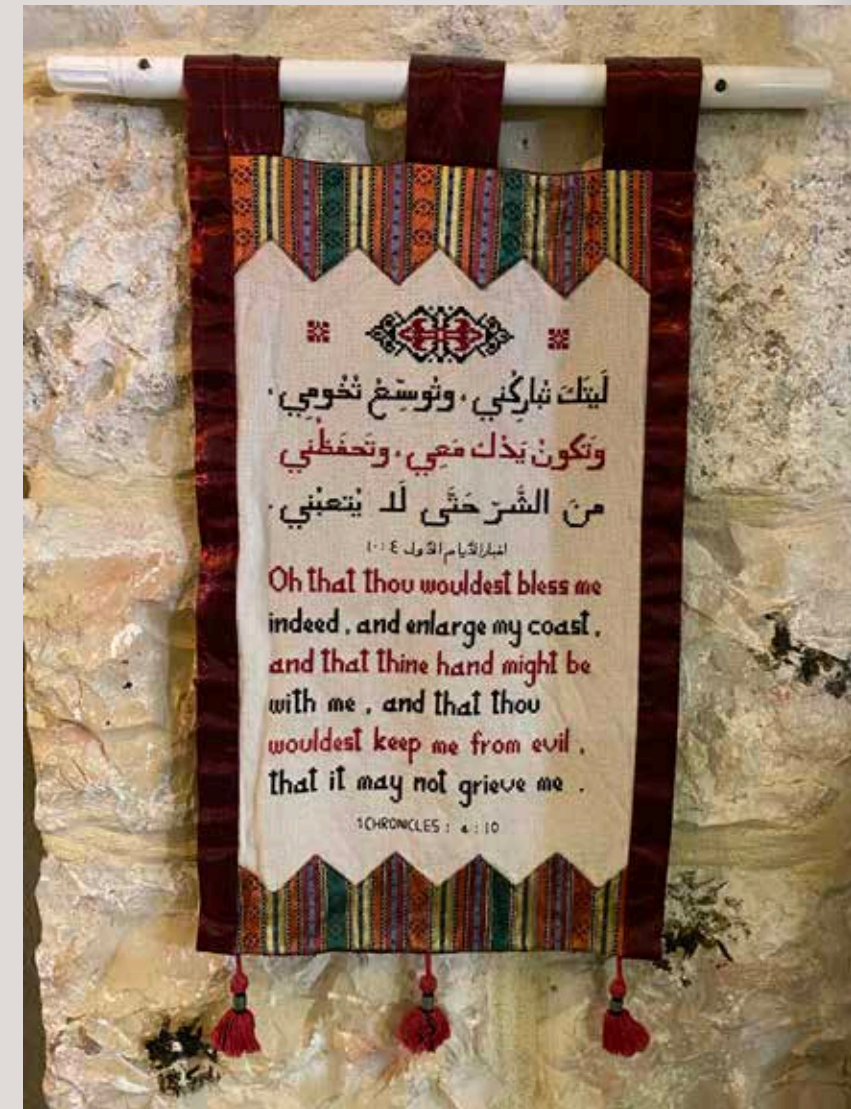 لَيتَكَ تُبارِكُني، وتُوسِّعُ تُخُومِي،
وَتَكونُ يَدُكَ مَعِي، وتَحفَظُني
منَ الشَّرِّ حَتَّى لَا يُتعبُني.
اخبار الأيام الأول ٤ : ١٠
Oh that thou wouldest bless me
indeed , and enlarge my coast ,
and that thine hand might be
with me , and that thou
wouldest keep me from evil ,
that it may not grieve me .
1CHRONICLES : 4 : 10